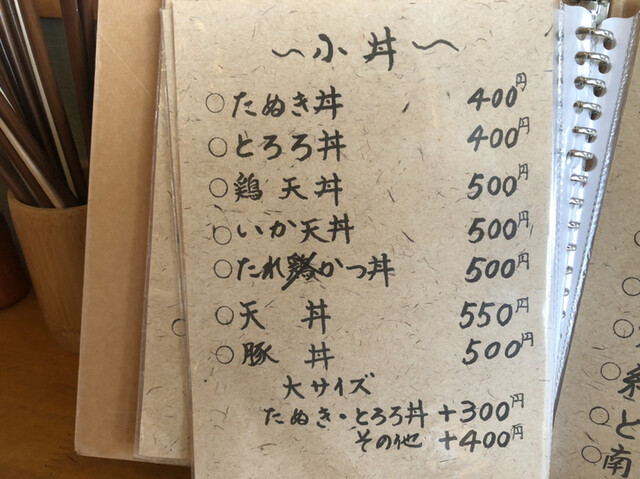 〜小丼〜
○たぬき丼 400円
○とろろ丼 400円
○鶏天丼 500円
○いか天丼 500円
○たれかつ丼 500円
○天丼 550円
○豚丼 500円
大サイズ
たぬき・とろろ丼 +300円
その他 +400円
○
○
○
○糸
○と
○南